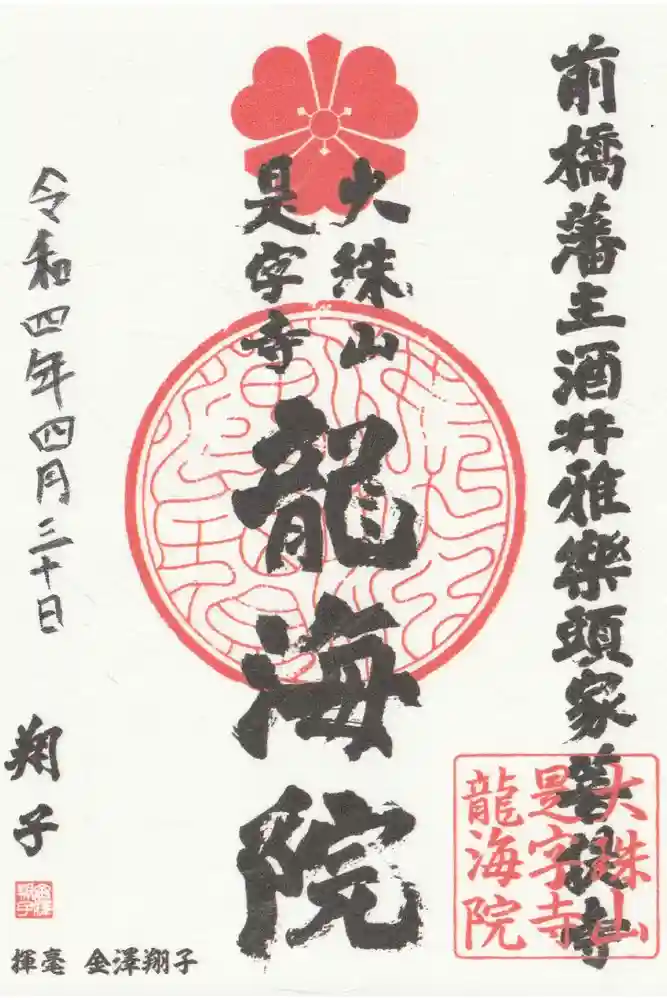 前橋藩主酒井雅樂頭家菩提寺
大珠山
是字寺
龍海院
大珠山
是字寺
龍海院
令和四年四月三十日
翔子
揮毫 金澤翔子